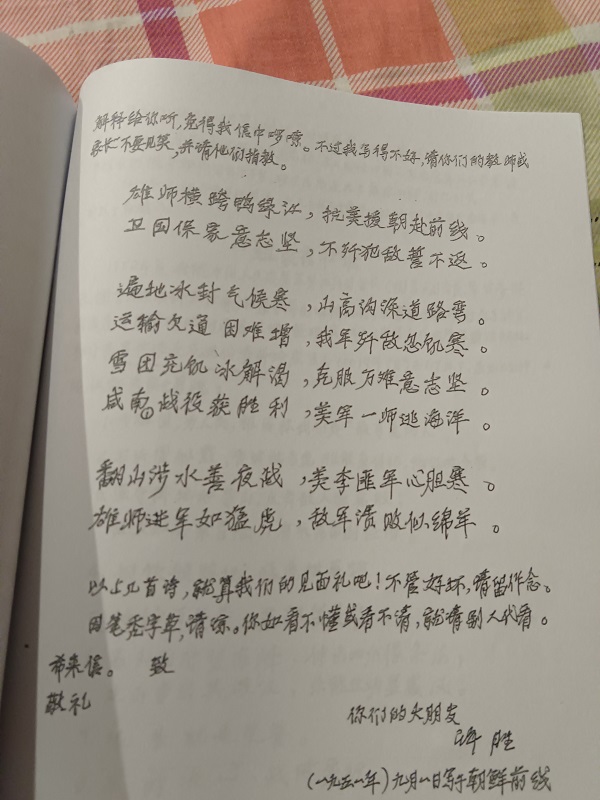 解释给你听,免得我信中啰嗦。不过我写得不好,请你们的教师或
家长不要见笑,并请他们指教。
雄师横跨鸭绿江,抗美援朝赴前线。
卫国保家意志坚,不歼犯敌誓不返。
遍地冰封气候寒,山高沟深道路弯。
运输欠通困难增,我军歼敌忍饥寒。
雪团充饥冰解渴,克服万难意志坚。
咸南战役获胜利,美军一师逃海洋。
翻山涉水善夜战,美李匪军心胆寒。
雄师进军如猛虎,敌军溃败似绵羊。
以上几首诗,就算我们的见面礼吧!不管好坏,请留作念。
因笔秃字草,请谅。你如看不懂或看不清,就请别人代看。
希来信。 致
敬礼
你们的大朋友
胜
(一九五一年)九月一日写于朝鲜前线